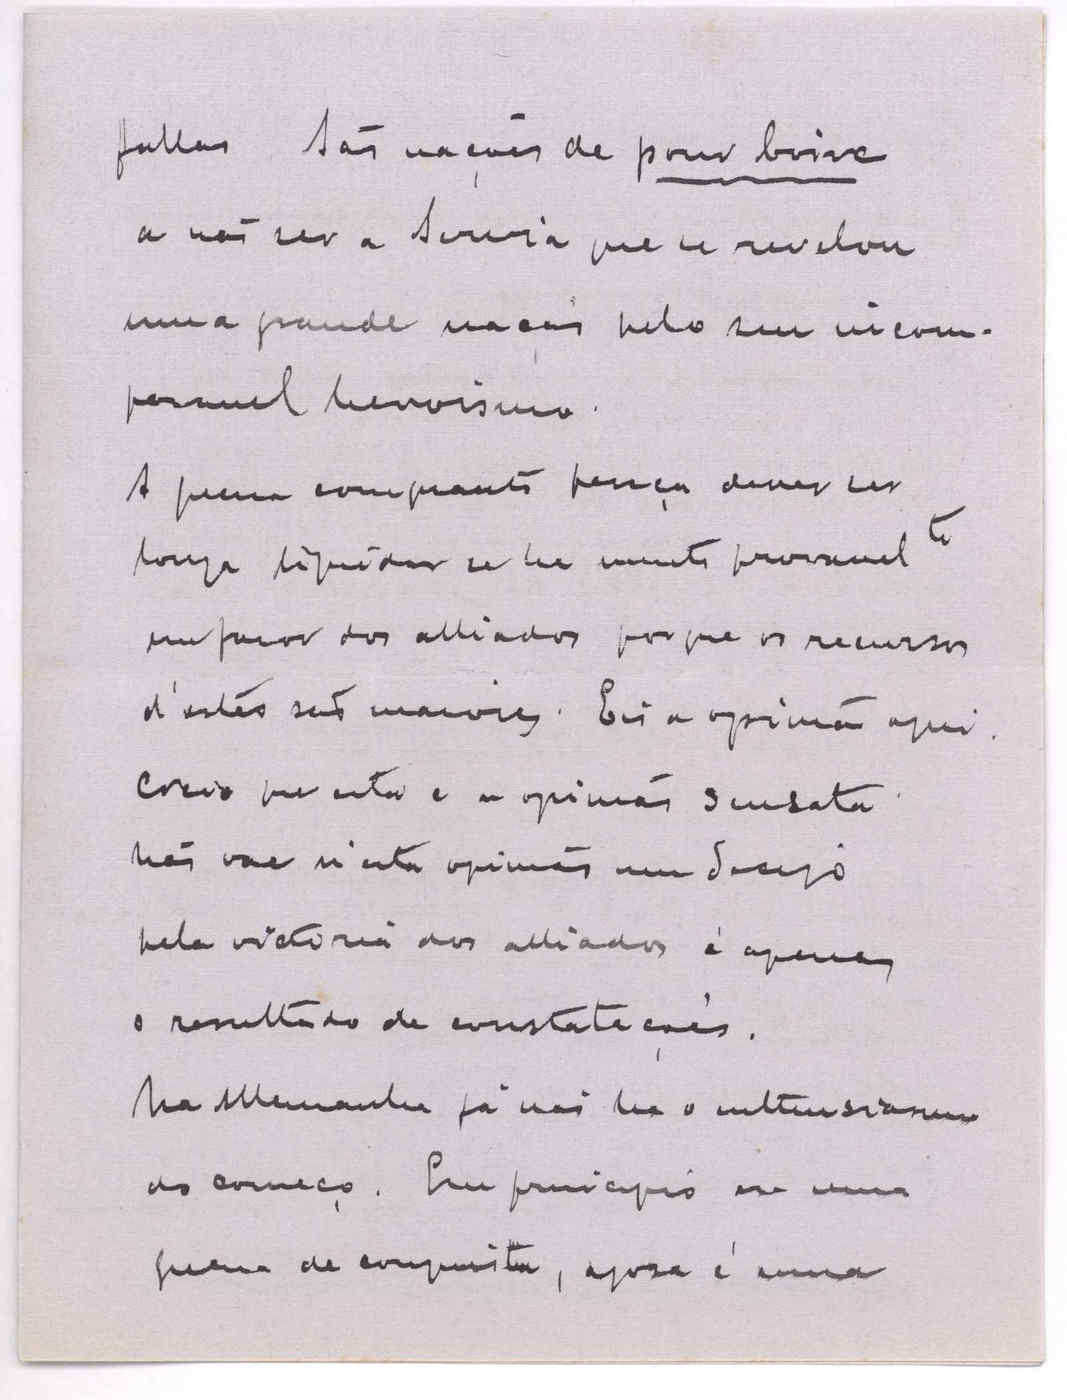 fallar São nações de pour boire
a não ser a Servia que se revelou
uma grande nação pelo seu incom-
paravel heroismo.
A guerra comquanto pareça dever ser
longa liquidar se ha muito provavel te
em favor dos alliados porque os recursos
d'estes são maiores. Eis a opinião aqui.
Creio que esta é a opinião sensata.
Não vae n'esta opinião um desejo
pela victoria dos alliados é apenas
o resultado de constatações.
Na Allemanha já não ha o enthusiasmo
do começo. Em principio era uma
guerra de conquista, agora é uma